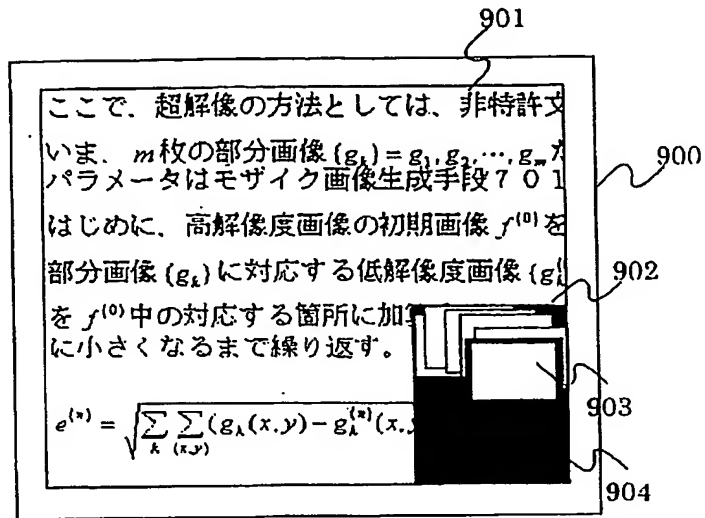 901
ここで、超解像の方法としては、非特許文
いま、m枚の部分画像{g_k}=g_1,g_2,…,g_m
パラメータはモザイク画像生成手段701
900
はじめに、高解像度画像の初期画像 f^(0) を
部分画像{g_k}に対応する低解像度画像{g_k
902
を f^(0) 中の対応する箇所に加算
に小さくなるまで繰り返す。
903
e^(n) = √∑_k ∑_(x,y) (g_k(x,y) − g_k^(n)(x,y
904